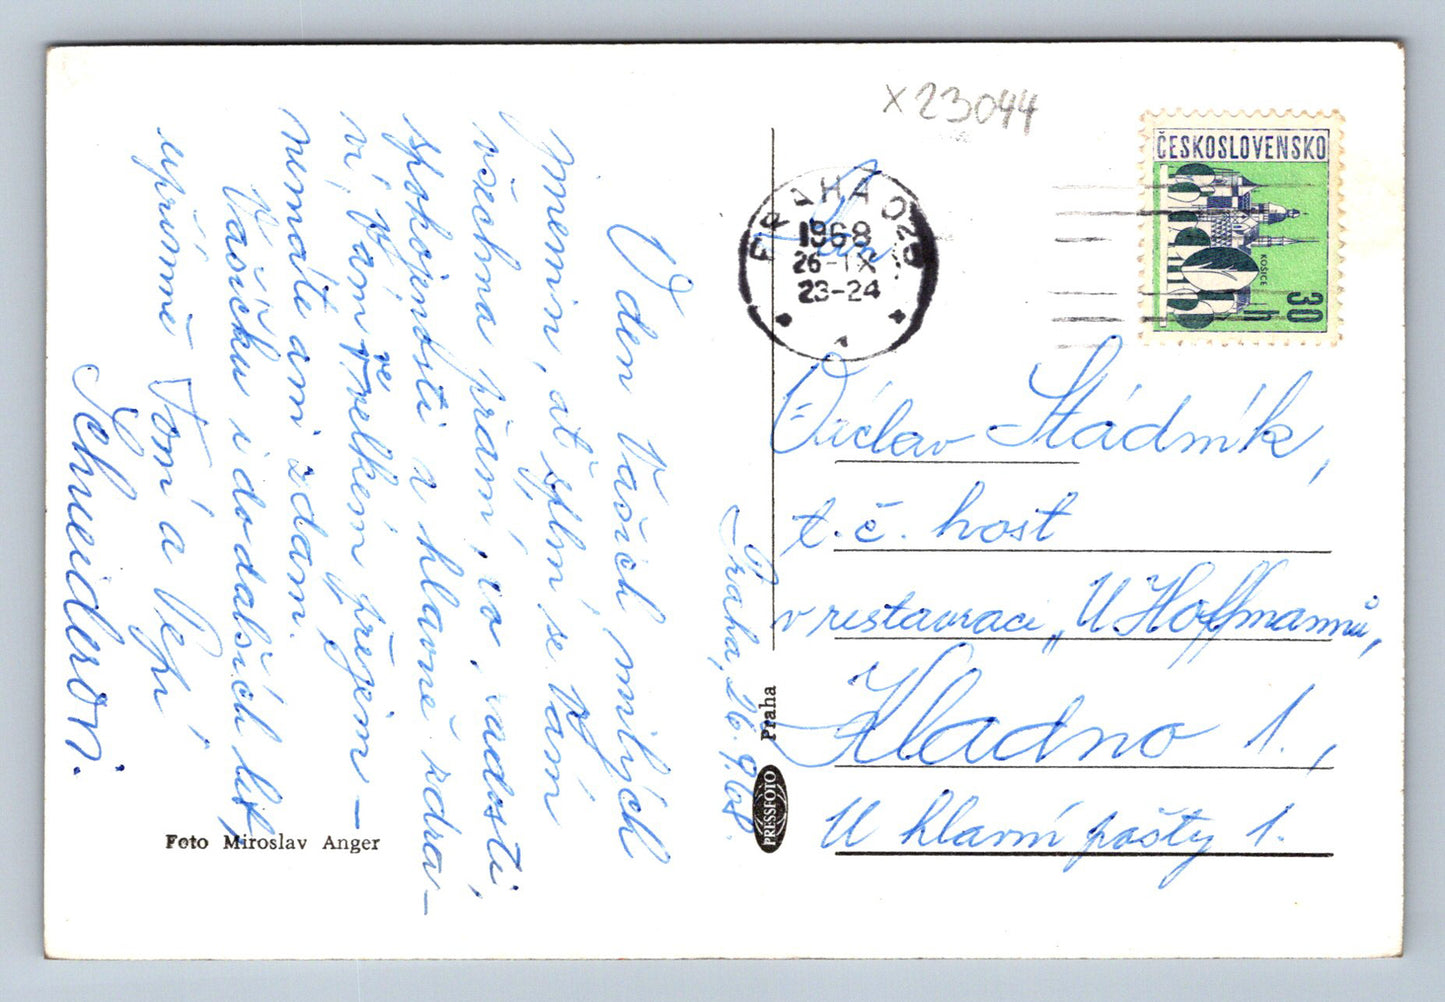 x 23044
ČESKOSLOVENSKO
KOŠICE
30 h
PRAHA 02
1968
26-IX
23-24
Praha, 26.9.68.
V den Vašich milých
jmenin, ať splní se Vám
všechna přání, co radosti,
spokojenosti a hlavně zdra-
ví, Vám ve velkém přejem -
nemaťe ani zdam.
Vašíčku i do dalších let,
upřímně Toní a Pepi
Schneidrovi.
Václav Stádník,
t.č. host
v restauraci „U Hoffmannů,
Kladno 1.,
U hlavní pošty 1.
Foto Miroslav Anger
PRESSFOTO Praha